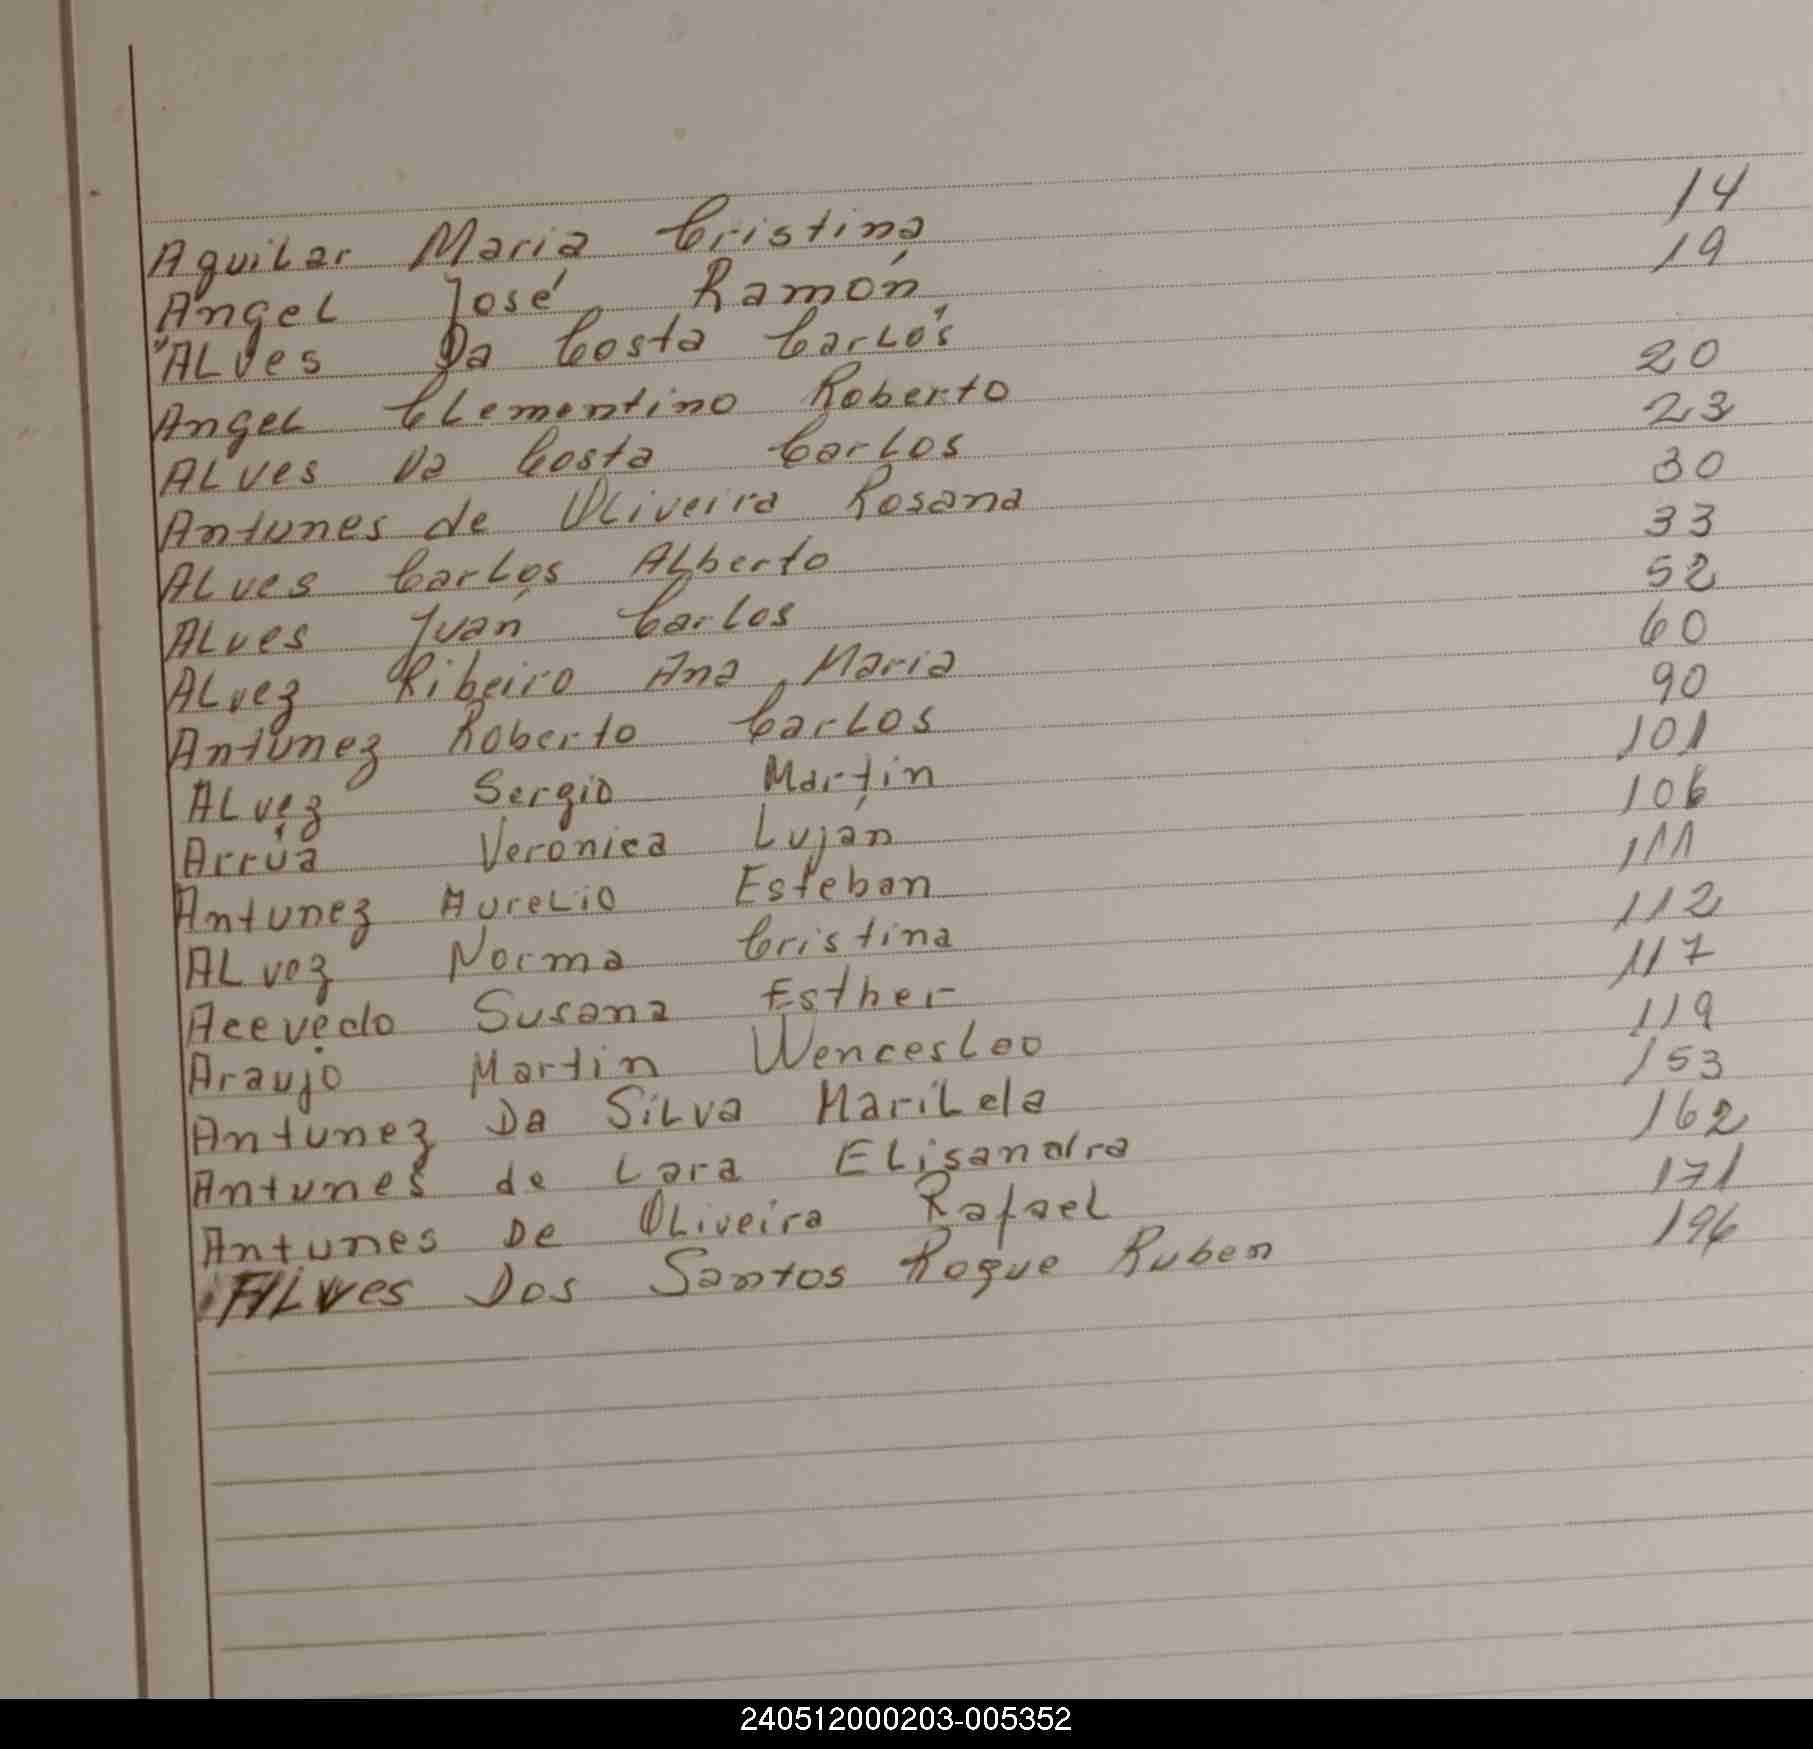 Aguilar Maria Cristina 14
Angel José Ramón 19
"ALves Da Costa Carlos
Angel Clementino Roberto 20
ALves Da Costa Carlos 23
Antunes de Oliveira Rosana 30
ALves Carlos ALberto 33
ALves Juan Carlos 52
ALvez Ribeiro Ana Maria 60
Antunez Roberto Carlos 90
ALvez Sergio Martin 101
Arrúa Veronica Luján 106
Antunez Aurelio Esteban 111
ALvez Norma Cristina 112
Acevedo Susana Esther 117
Araujo Martin Wencesloo 119
Antunez Da Silva Marilela 153
Antunes de Lara Elisandra 162
Antunes De Oliveira Rafael 171
ALves Dos Santos Roque Ruben 196
240512000203-005352